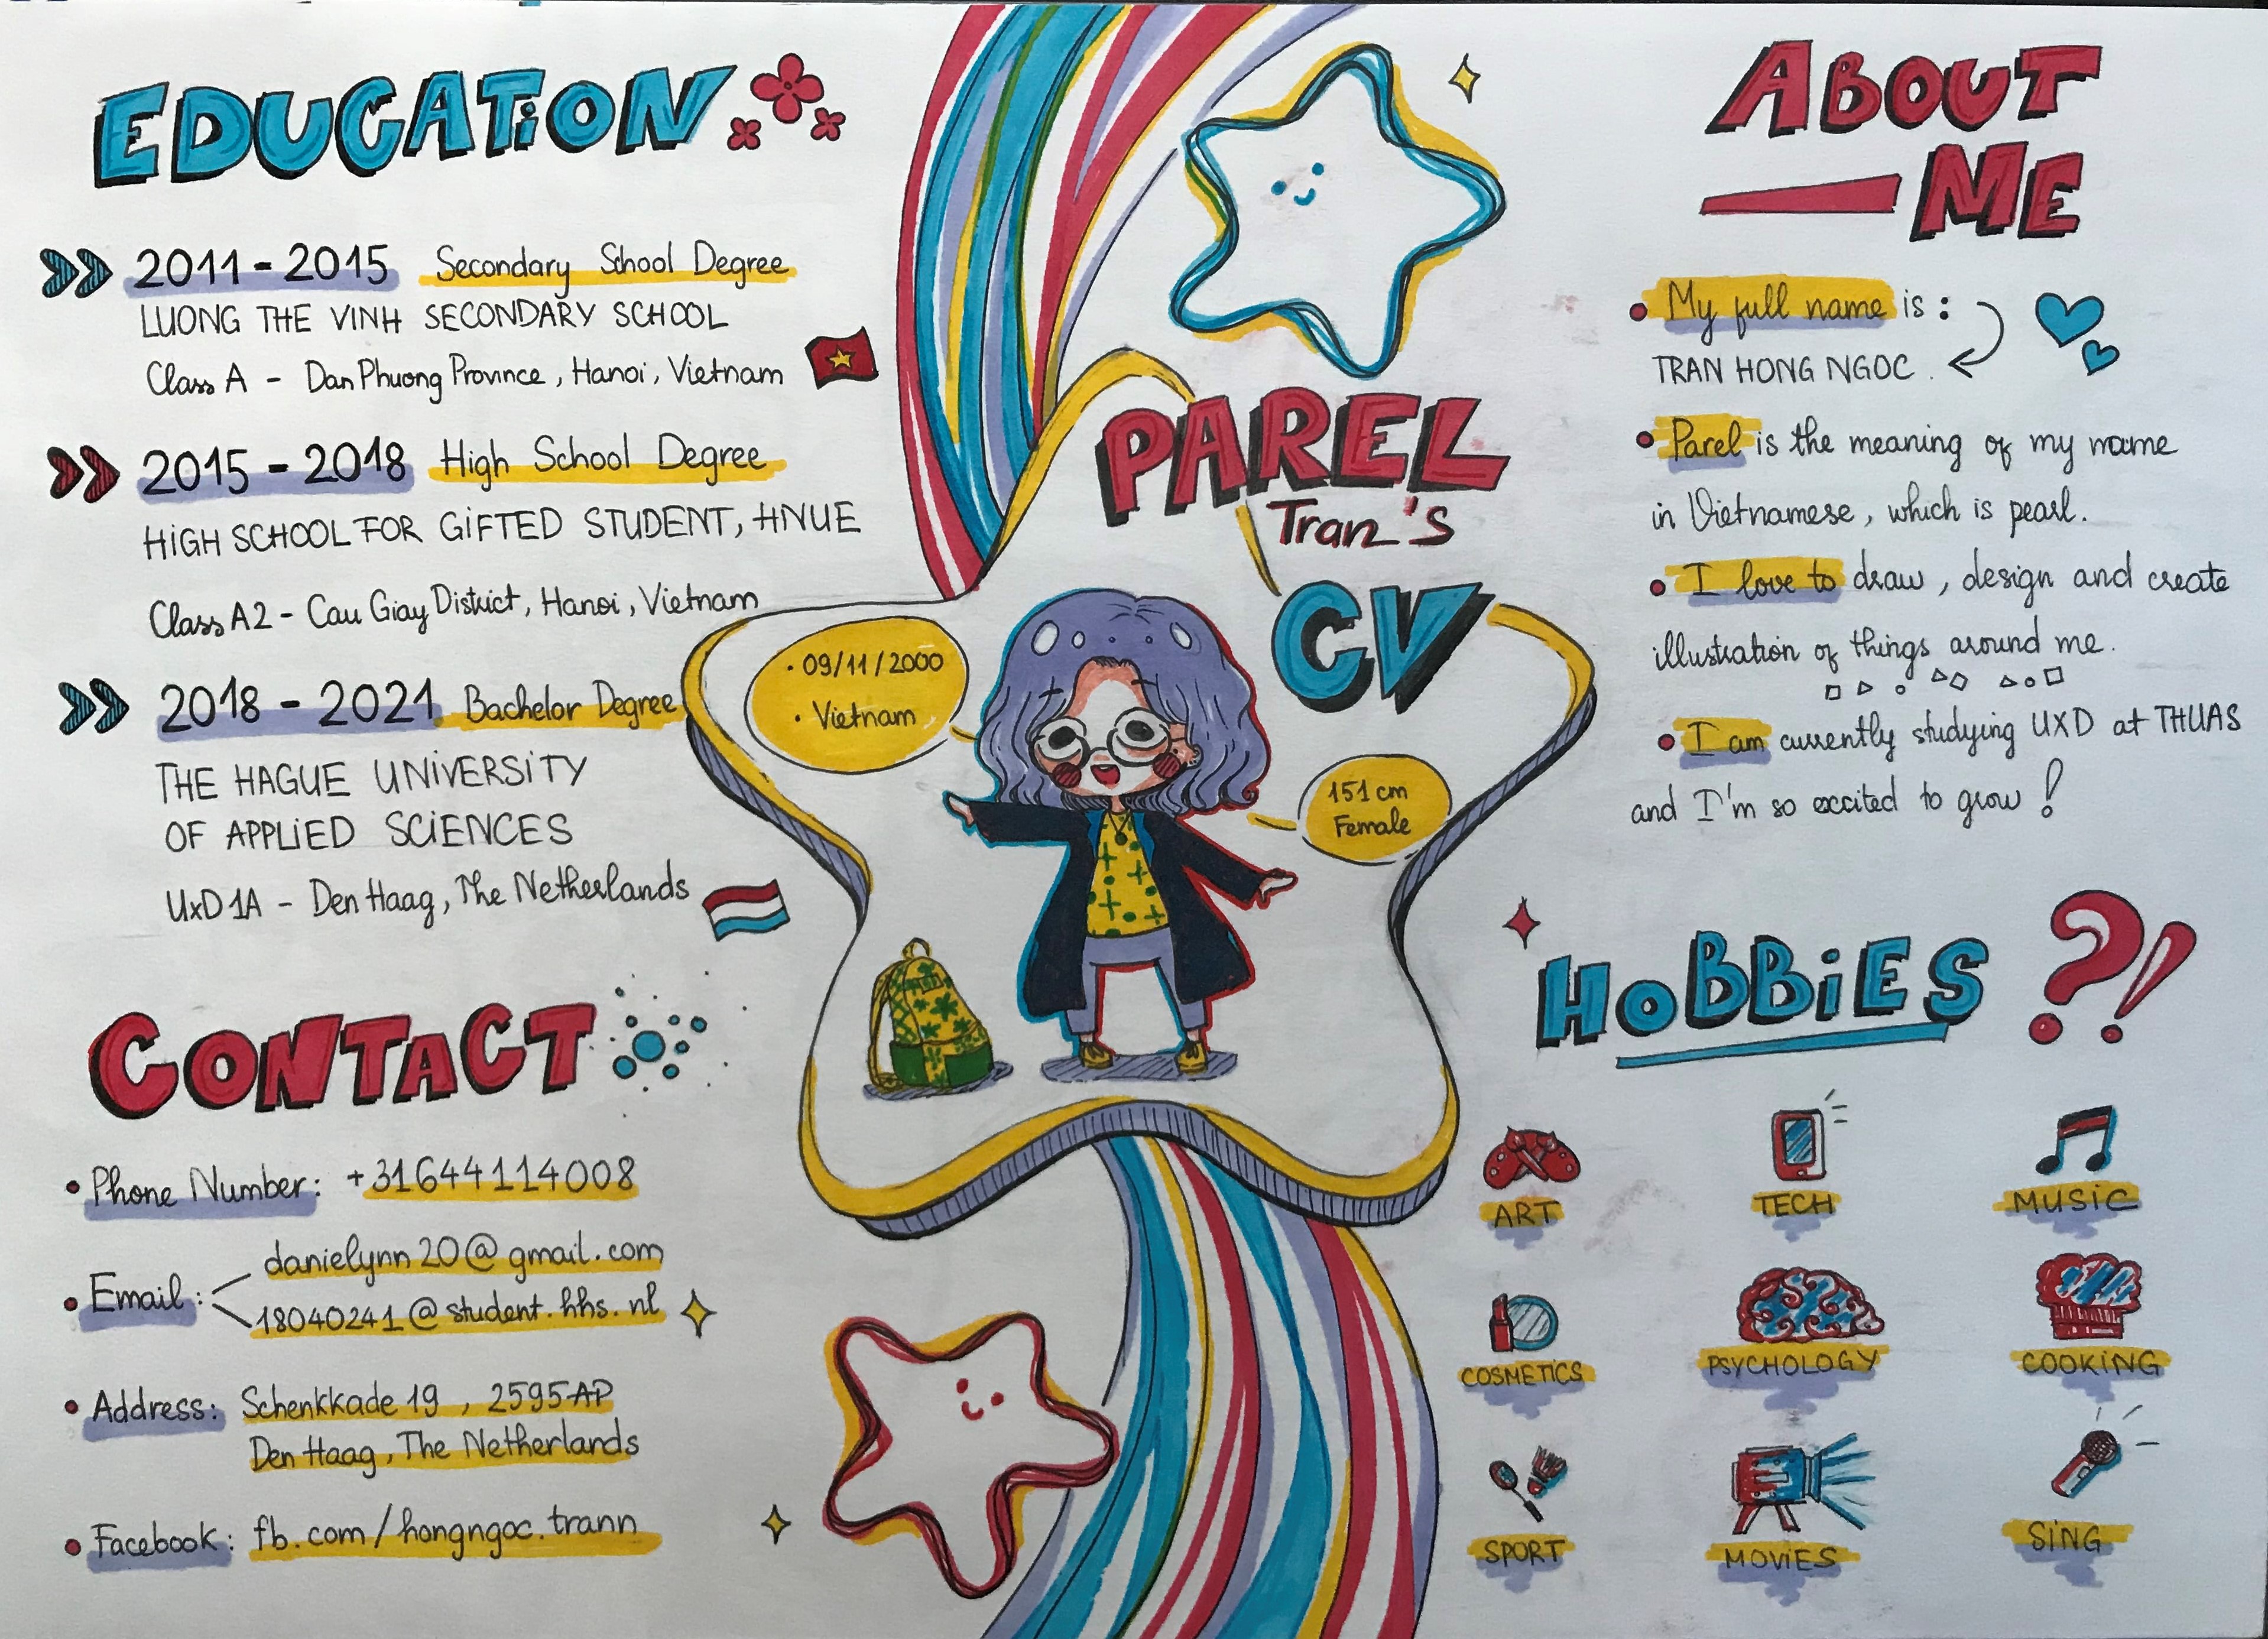 EDUCATION
2011 - 2015 Secondary School Degree
LUONG THE VINH SECONDARY SCHOOL
Class A - Dan Phuong Province, Hanoi, Vietnam
2015 - 2018 High School Degree
HIGH SCHOOL FOR GIFTED STUDENT, HNUE
Class A2 - Cau Giay District, Hanoi, Vietnam
2018 - 2021 Bachelor Degree
THE HAGUE UNIVERSITY
OF APPLIED SCIENCES
UxD 1A - Den Haag, The Netherlands
CONTACT
• Phone Number: +31644114008
• Email: danielynn20@gmail.com
18040241@student.hhs.nl
• Address: Schenkkade 19, 2595AP
Den Haag, The Netherlands
• Facebook: fb.com/hongngoc.trann
PAREL
Tran's
CV
• 09/11/2000
• Vietnam
151 cm
Female
ABOUT
ME
• My full name is:
TRAN HONG NGOC.
• Parel is the meaning of my name
in Vietnamese, which is pearl.
• I love to draw, design and create
illustration of things around me.
• I am currently studying UXD at THUAS
and I'm so excited to grow!
HOBBIES ?!
ART TECH MUSIC
COSMETICS PSYCHOLOGY COOKING
SPORT MOVIES SING